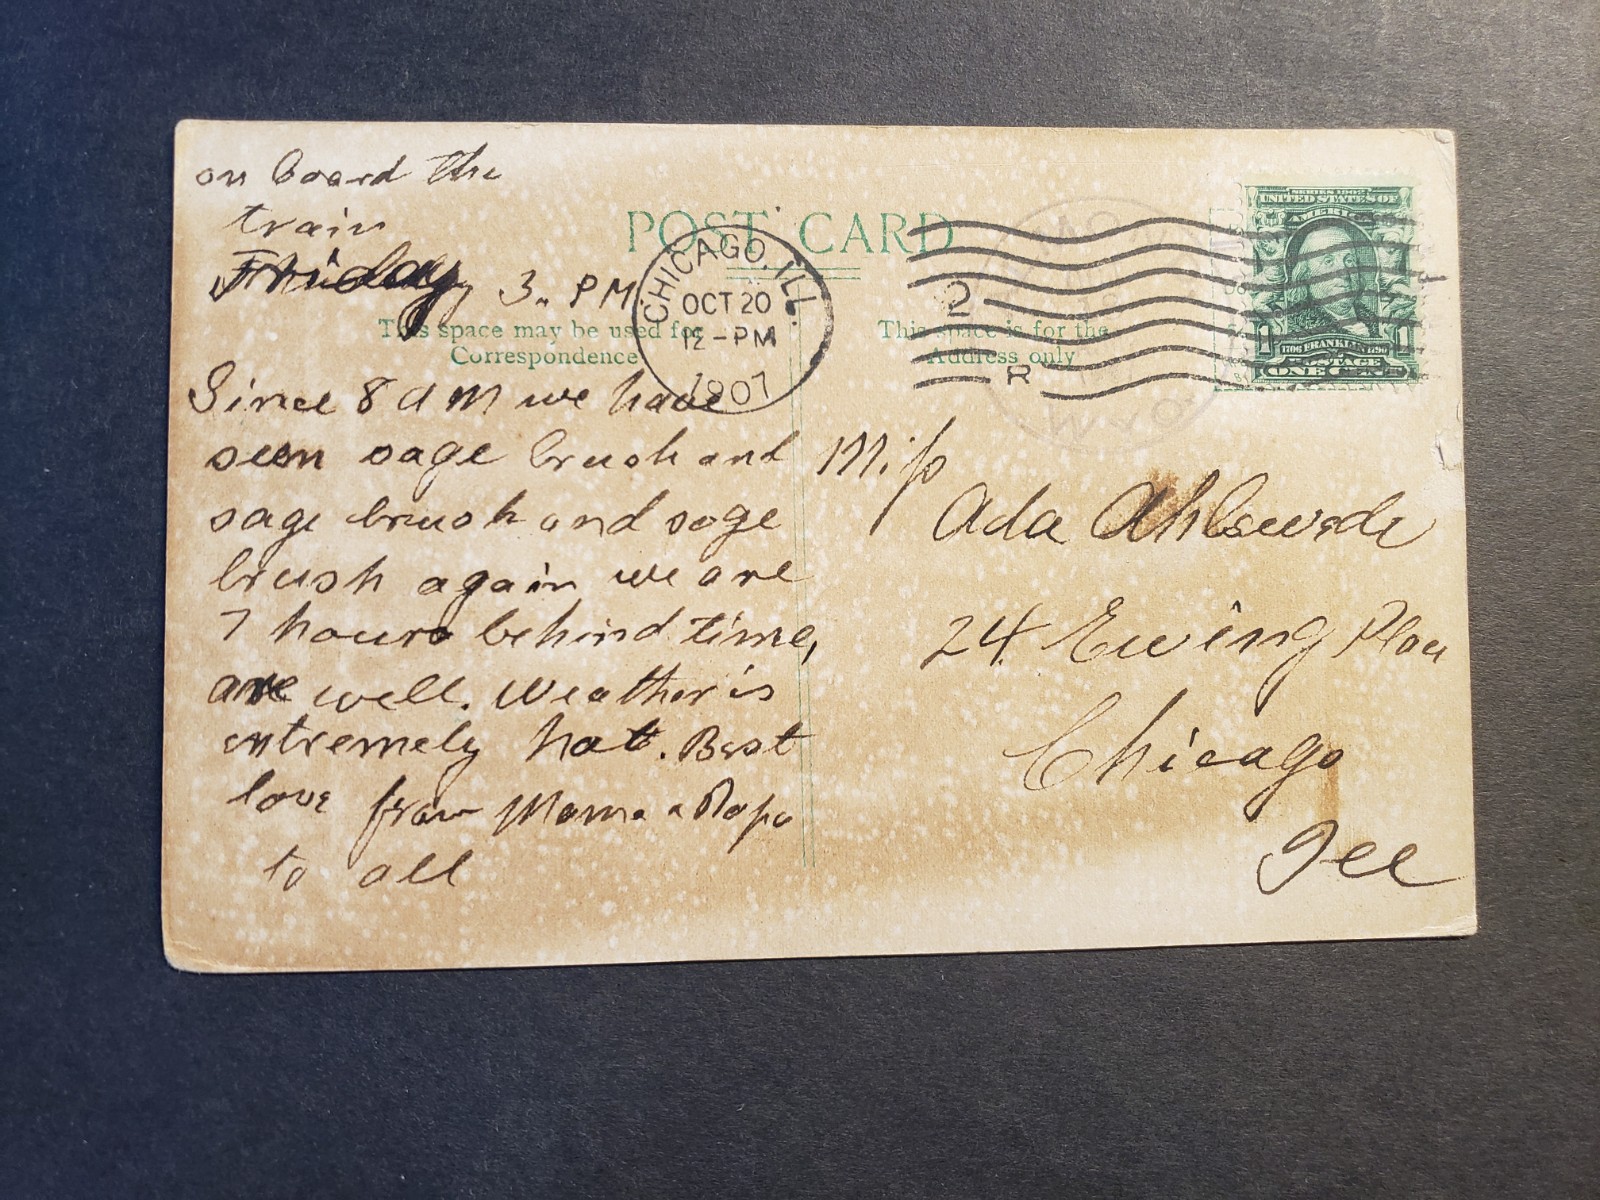 on board the
train
Friday 3. PM
POST CARD
This space may be used for
Correspondence
This space is for the
Address only
CHICAGO, ILL.
OCT 20
12-PM
1907
2
R
SERIES 1902
UNITED STATES OF
AMERICA
1706 FRANKLIN 1790
1 POSTAGE 1
ONE CENT
Since 8 a m we have
seen sage brush and
sage brush and sage
brush again we are
7 hours behind time,
are well. Weather is
extremely hot. Best
love from Mama & Papa
to all
Miss
Ada Ahlswede
24 Ewing Place
Chicago
Ill